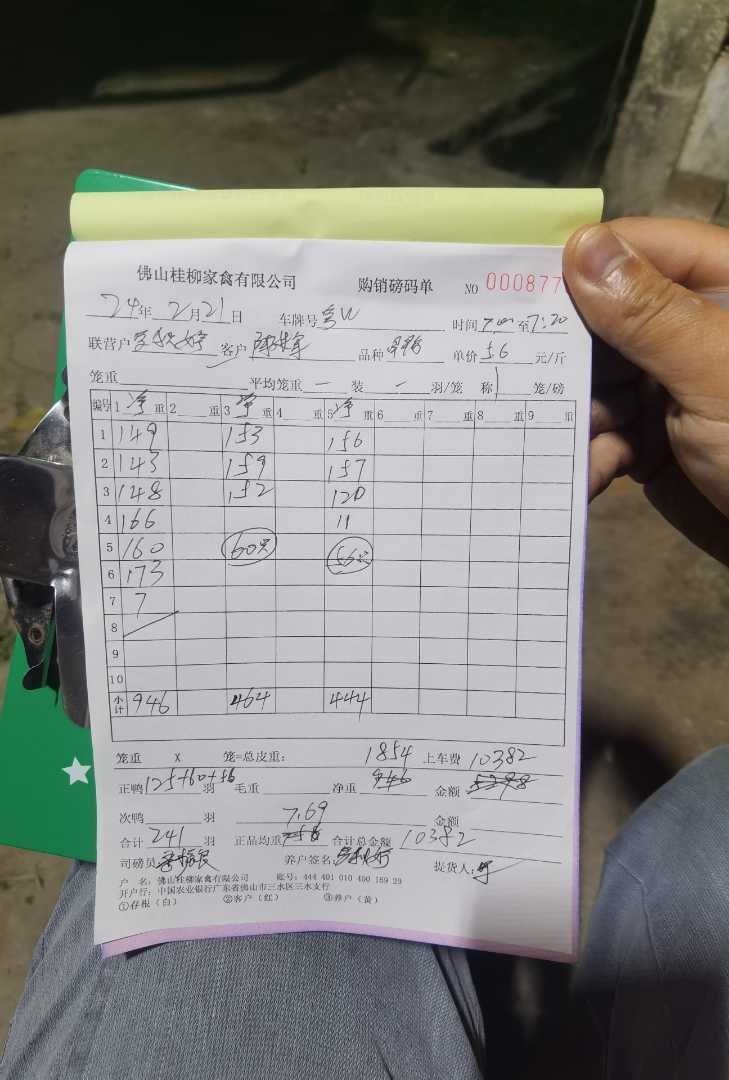 佛山桂柳家禽有限公司 购销磅码单 NO 000877
24年 2月21日 车牌号 粤W 时间 至7:20
联营户 客户 品种 单价 5.6 元/斤
笼重 平均笼重 一 装 一 羽/笼 称 笼/磅
编号 1 净 重 2 重 3 净 重 4 重 5 净 重 6 重 7 重 8 重 9 重
1 149 153 156
2 143 159 157
3 148 152 120
4 166 11
5 160 60只 56只
6 173
7 7
8
9
10
小计 946 464 444
笼重 X 笼=总皮重: 1854 上车费 10382
正鸭 125+60+56 羽 毛重 净重 金额
次鸭 羽 7.69 金额
合计 241 羽 正品均重 合计总金额 10382
司磅员 养户签名: 提货人:
户 名: 佛山桂柳家禽有限公司 账号: 444 491 010 400 189 29
开户行: 中国农业银行广东省佛山市三水区三水支行
①存根(白) ②客户(红) ③养户(黄)